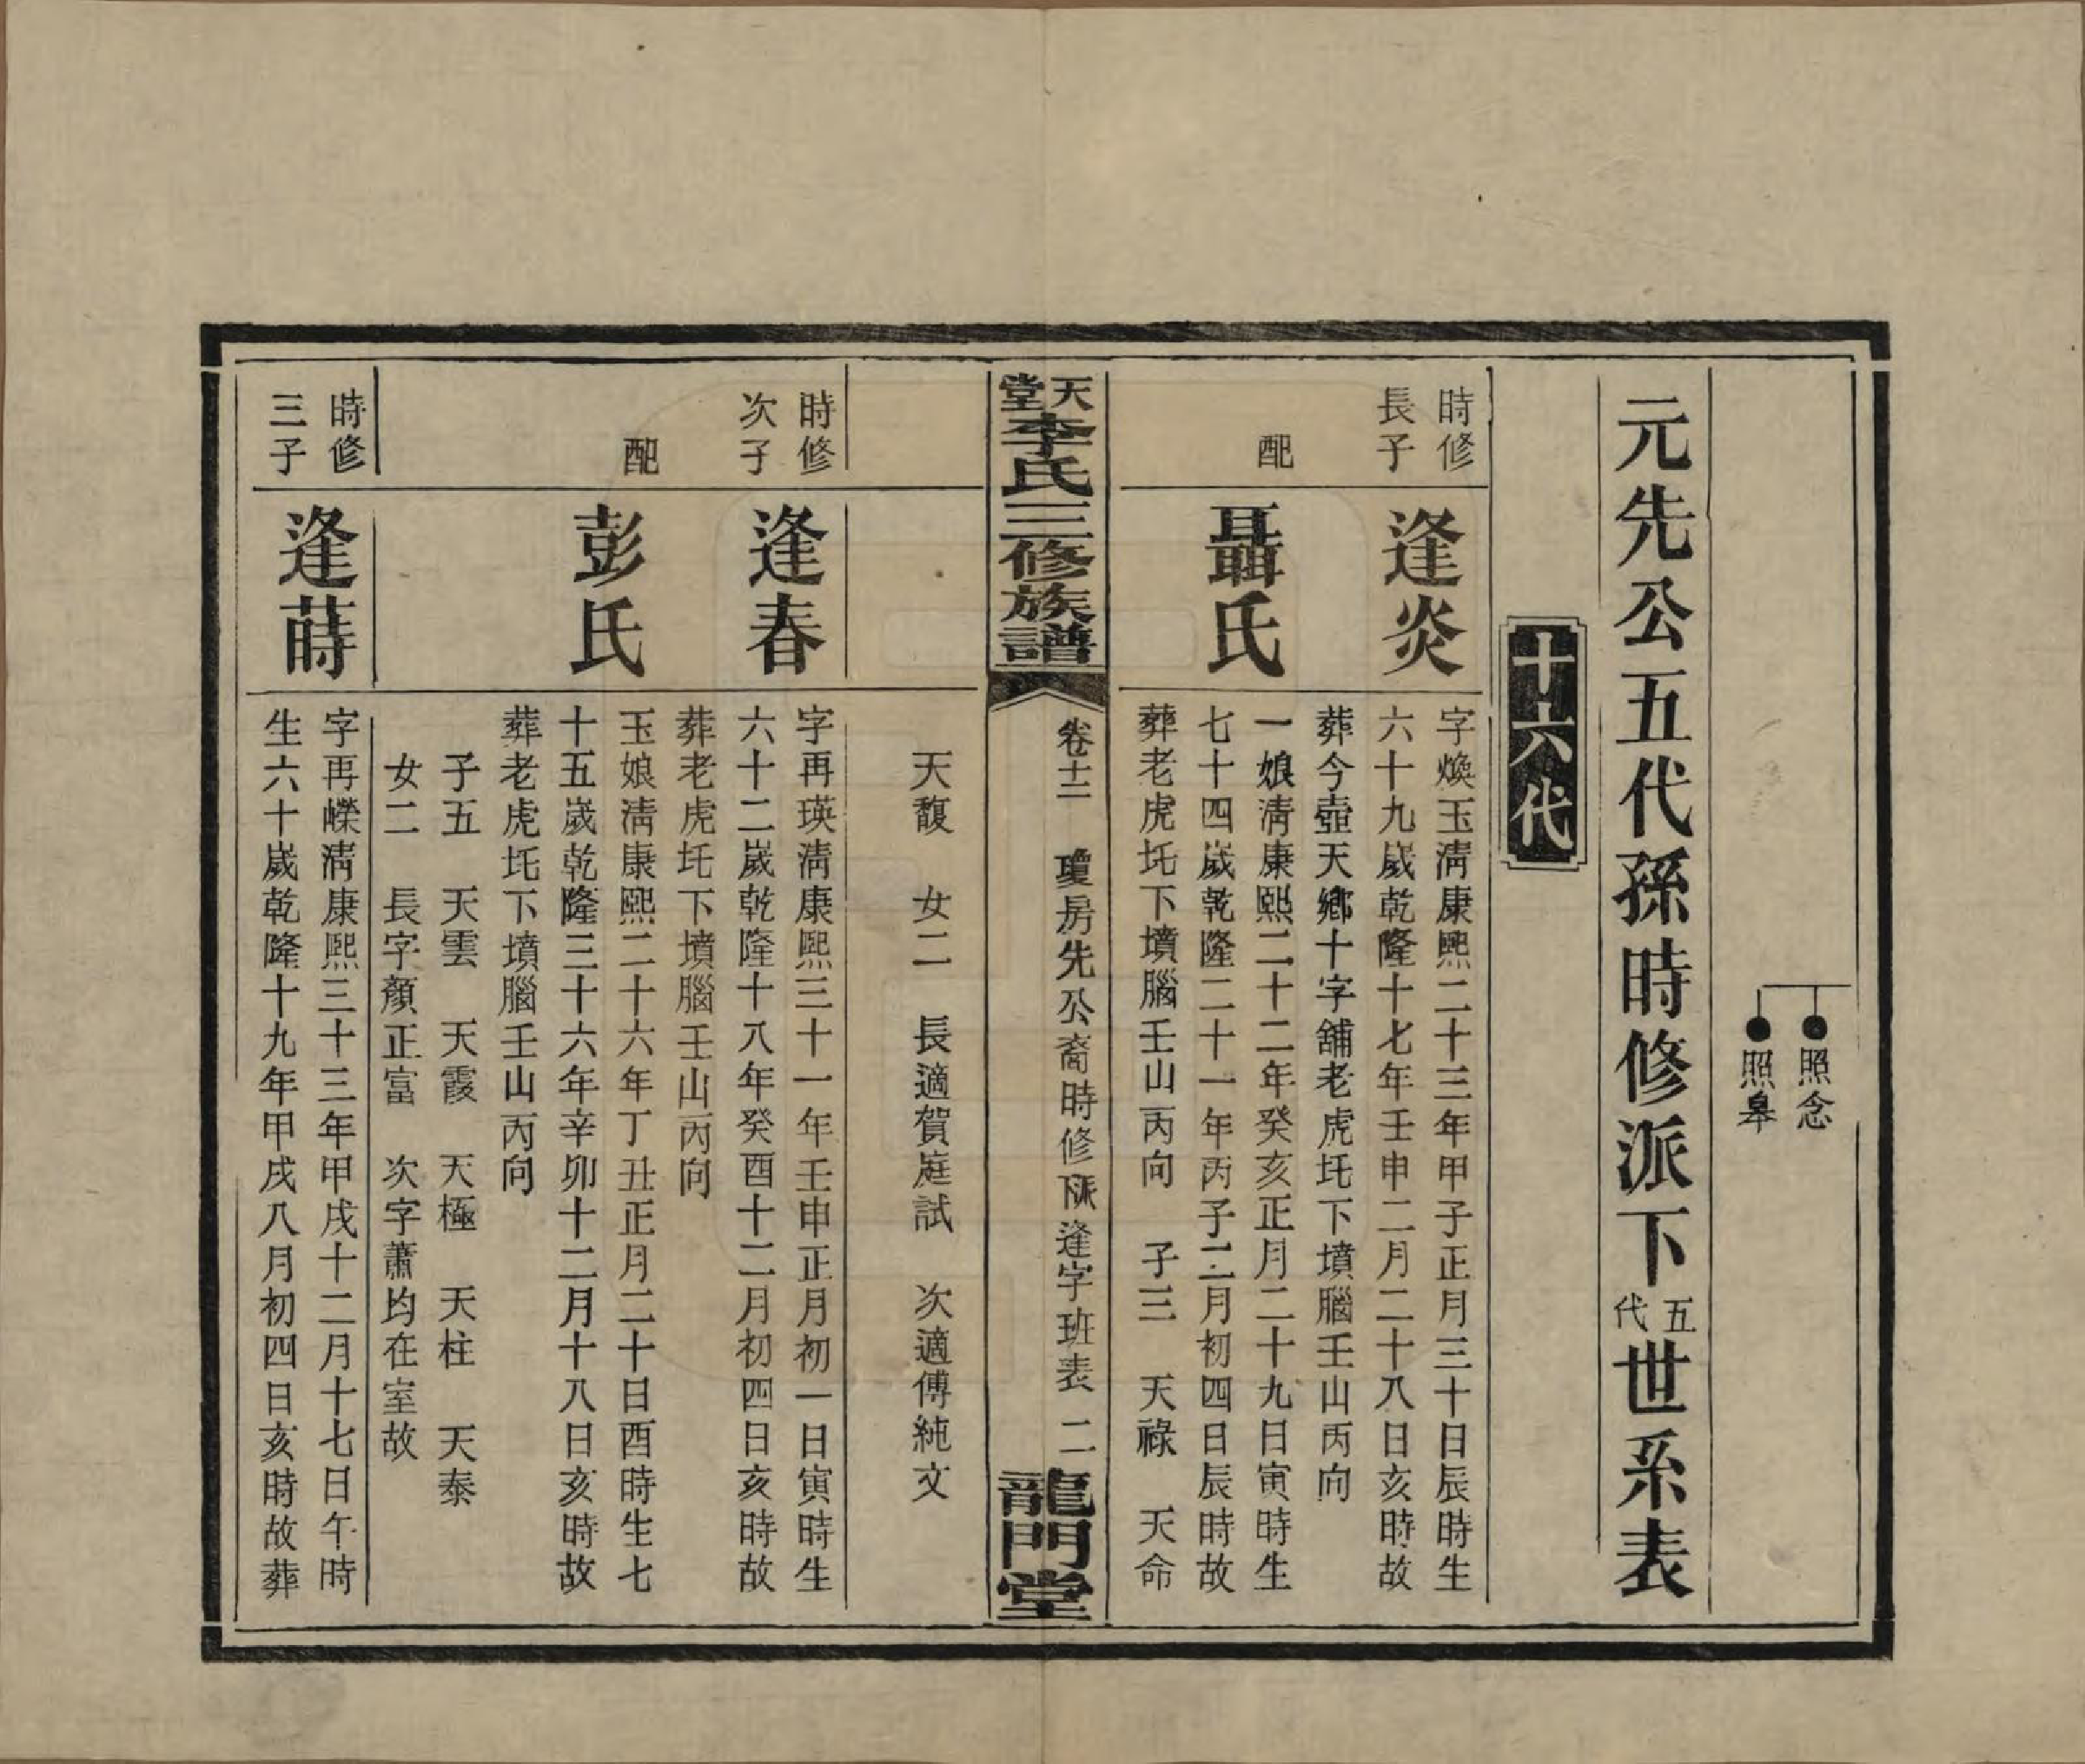 照念
照皋
元先公五代孫時修派下五代世系表
十六代
時修
長子
逢炎
字煥玉淸康熙二十三年甲子正月三十日辰時生
六十九歲乾隆十七年壬申二月二十八日亥時故
葬今壺天鄉十字舖老虎圫下墳腦壬山丙向
配
聶氏
一娘淸康熙二十二年癸亥正月二十九日寅時生
七十四歲乾隆二十一年丙子二月初四日辰時故
葬老虎圫下墳腦壬山丙向 子三 天祿 天命
天堂李氏三修族譜
卷十二 瓊房先公裔時修派逢字班表 二
龍門堂
天馥 女二 長適賀庭試 次適傅純文
時修
次子
逢春
字再瑛淸康熙三十一年壬申正月初一日寅時生
六十二歲乾隆十八年癸酉十二月初四日亥時故
葬老虎圫下墳腦壬山丙向
配
彭氏
玉娘淸康熙二十六年丁丑正月二十日酉時生七
十五歲乾隆三十六年辛卯十二月十八日亥時故
葬老虎圫下墳腦壬山丙向
子五 天雲 天霞 天極 天柱 天泰
女二 長字顏正富 次字蕭均在室故
時修
三子
逢蒔
字再嶸淸康熙三十三年甲戌十二月十七日午時
生六十歲乾隆十九年甲戌八月初四日亥時故葬